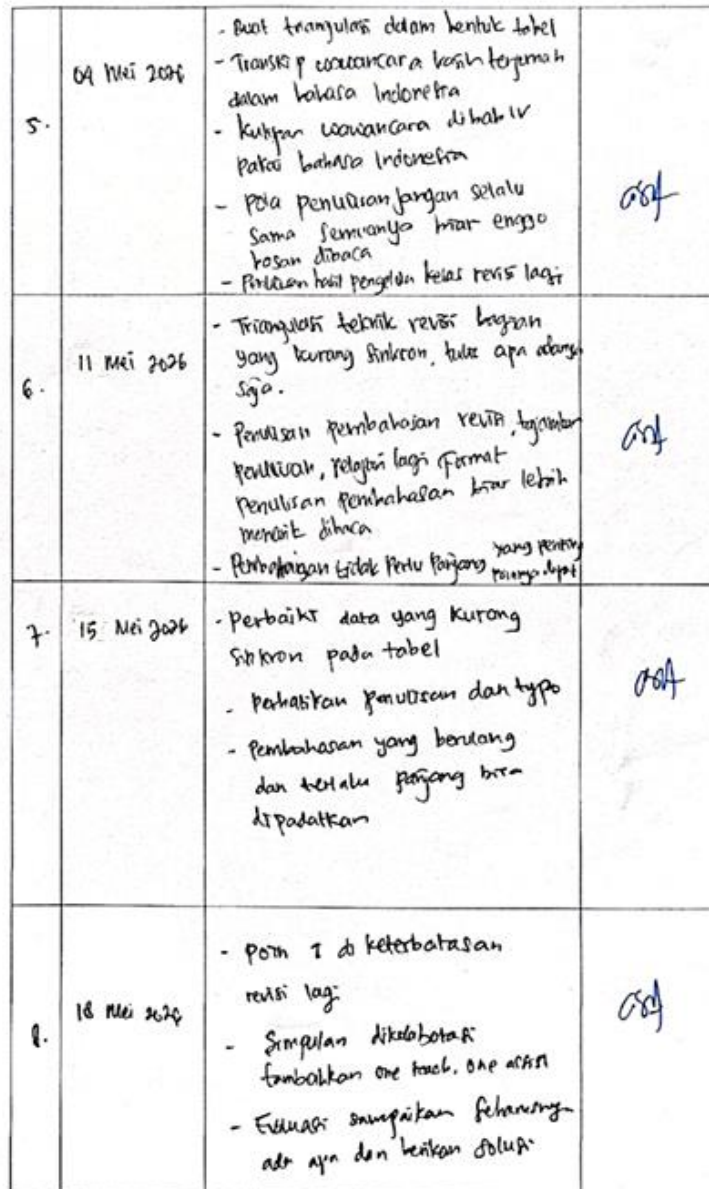 5.
04 Mei 2026
- Buat triangulasi dalam bentuk tabel
- Transkrip wawancara kasih terjemah
dalam bahasa Indonesia
- Kutipan wawancara dibab IV
Pakai bahasa Indonesia
- Pola penulisan jangan selalu
sama semuanya biar enggo
bosan dibaca
- Penulisan hasil pengelola kelas revisi lagi
6.
11 Mei 2026
- Triangulasi teknik revisi bagian
yang kurang sinkron, tulis apa adanya
saja.
- Penulisan pembahasan revisi,
penulisan, pelajari lagi format
penulisan pembahasan biar lebih
menarik dibaca
- Pembahasan tidak perlu panjang yang penting
poinnya dapat
7.
15 Mei 2026
- Perbaiki data yang kurang
sinkron pada tabel
- Perhatikan penulisan dan typo
- Pembahasan yang berulang
dan terlalu panjang bisa
dipadatkan
8.
18 Mei
- Poin 1 di keterbatasan
revisi lagi
- Simpulan dikolaborasi
tambahkan one teach, one assist
- Evaluasi sampaikan seharusnya
ada apa dan berikan solusi